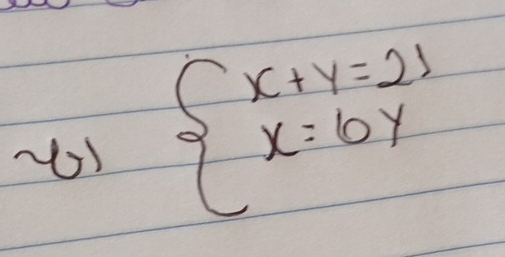 b) { x + y = 21
x = 6y